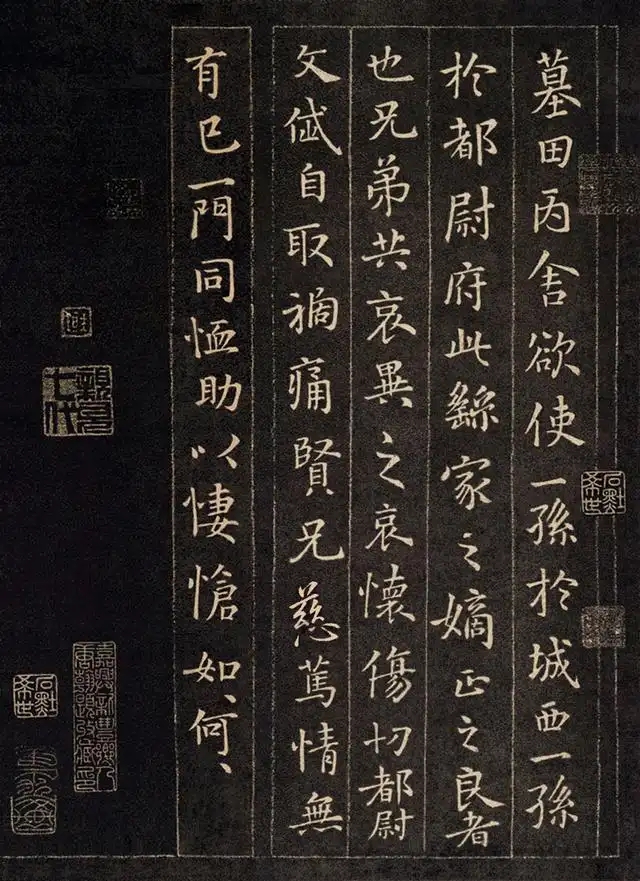 墓田丙舍欲使一孫於城西一孫
於都尉府此繇家之嫡正之良者
也兄弟共哀異之哀懷傷切都尉
文岱自取禍痛賢兄慈篤情無
有已一門同恤助以悽愴如、何、
嘉興新豐鄉人
唐翰題收藏印